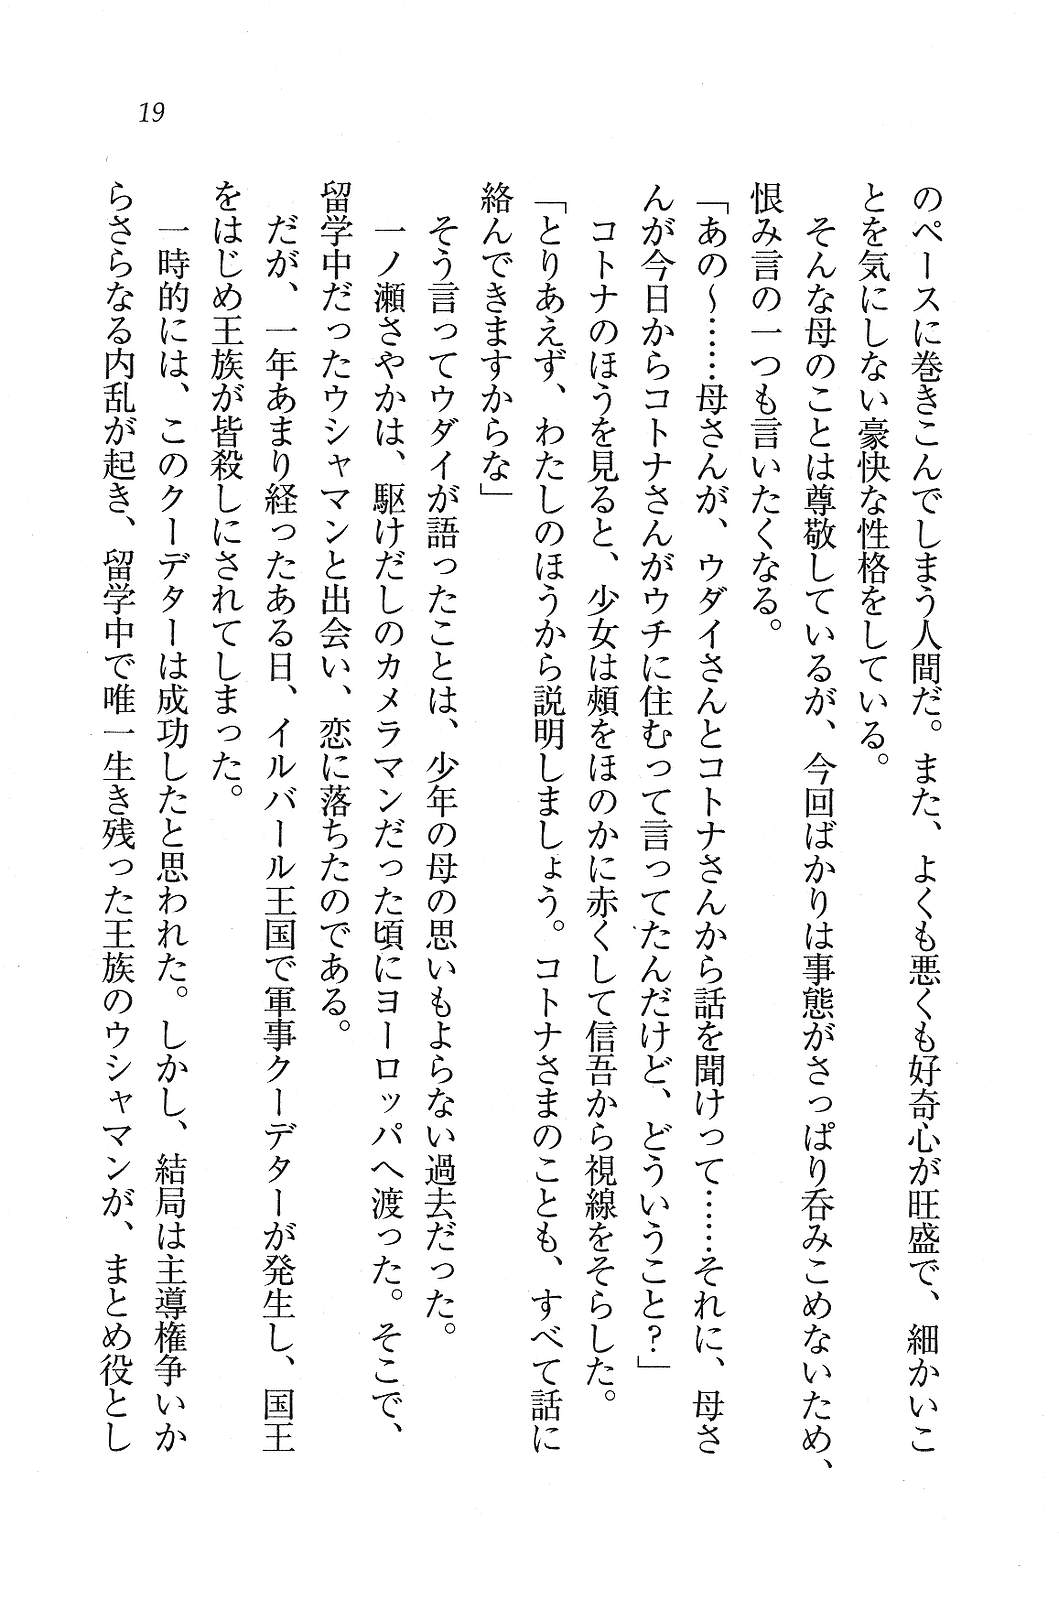 19
のペースに巻きこんでしまう人間だ。また、よくも悪くも好奇心が旺盛で、細かいこ
とを気にしない豪快な性格をしている。
そんな母のことは尊敬しているが、今回ばかりは事態がさっぱり呑みこめないため、
恨み言の一つも言いたくなる。
「あの～……母さんが、ウダイさんとコトナさんから話を聞けって……それに、母さ
んが今日からコトナさんがウチに住むって言ってたんだけど、どういうこと?」
コトナのほうを見ると、少女は頬をほのかに赤くして信吾から視線をそらした。
「とりあえず、わたしのほうから説明しましょう。コトナさまのことも、すべて話に
絡んできますからな」
そう言ってウダイが語ったことは、少年の母の思いもよらない過去だった。
一ノ瀬さやかは、駆けだしのカメラマンだった頃にヨーロッパへ渡った。そこで、
留学中だったウシャマンと出会い、恋に落ちたのである。
だが、一年あまり経ったある日、イルバール王国で軍事クーデターが発生し、国王
をはじめ王族が皆殺しにされてしまった。
一時的には、このクーデターは成功したと思われた。しかし、結局は主導権争いか
らさらなる内乱が起き、留学中で唯一生き残った王族のウシャマンが、まとめ役とし